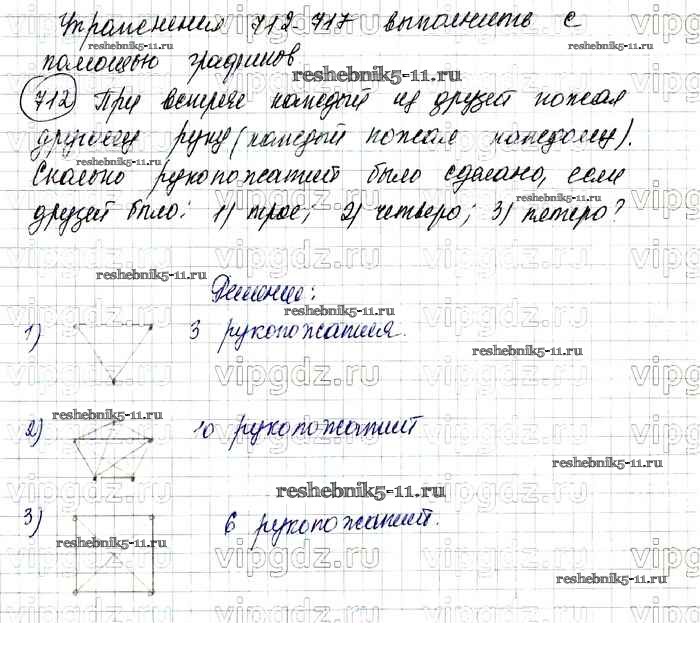 Упражнения 712-717 выполнить с
помощью графиков
712 При встрече каждый из друзей пожал
другому руку (каждый пожал каждому).
Сколько рукопожатий было сделано, если
друзей было: 1) трое; 2) четверо; 3) пятеро?
Решение:
1) 3 рукопожатия.
2) 10 рукопожатий
3) 6 рукопожатий.
reshebnik5-11.ru
vipgdz.ru